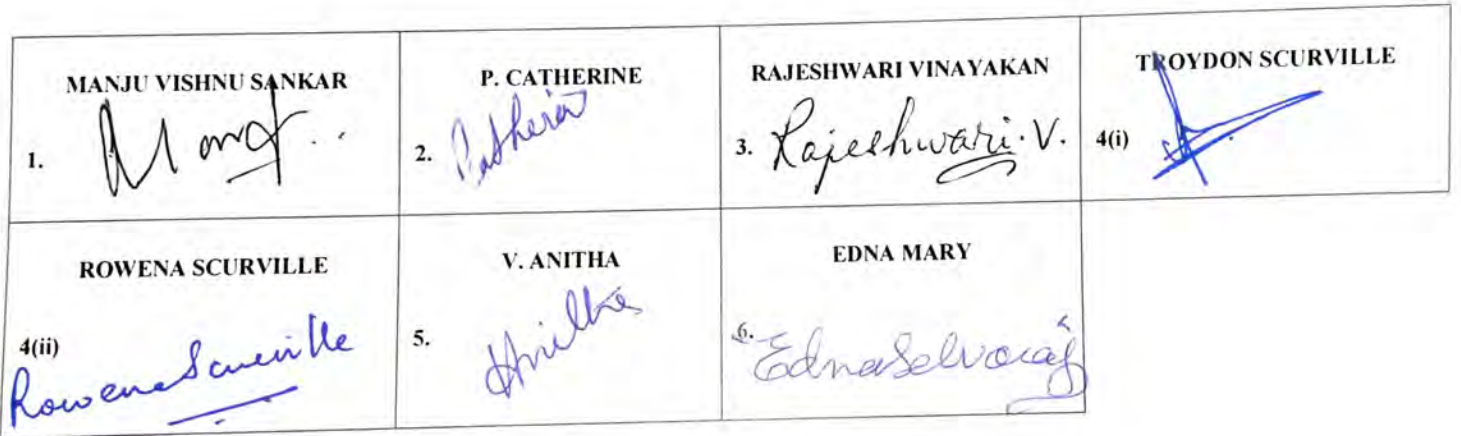 MANJU VISHNU SANKAR
1.
P. CATHERINE
2. Catherin
RAJESHWARI VINAYAKAN
3. Rajeshwari. V.
TROYDON SCURVILLE
4(i)
ROWENA SCURVILLE
4(ii)
Rowena Scurville
V. ANITHA
5. Anitha
EDNA MARY
6. EdnaSelvaraj